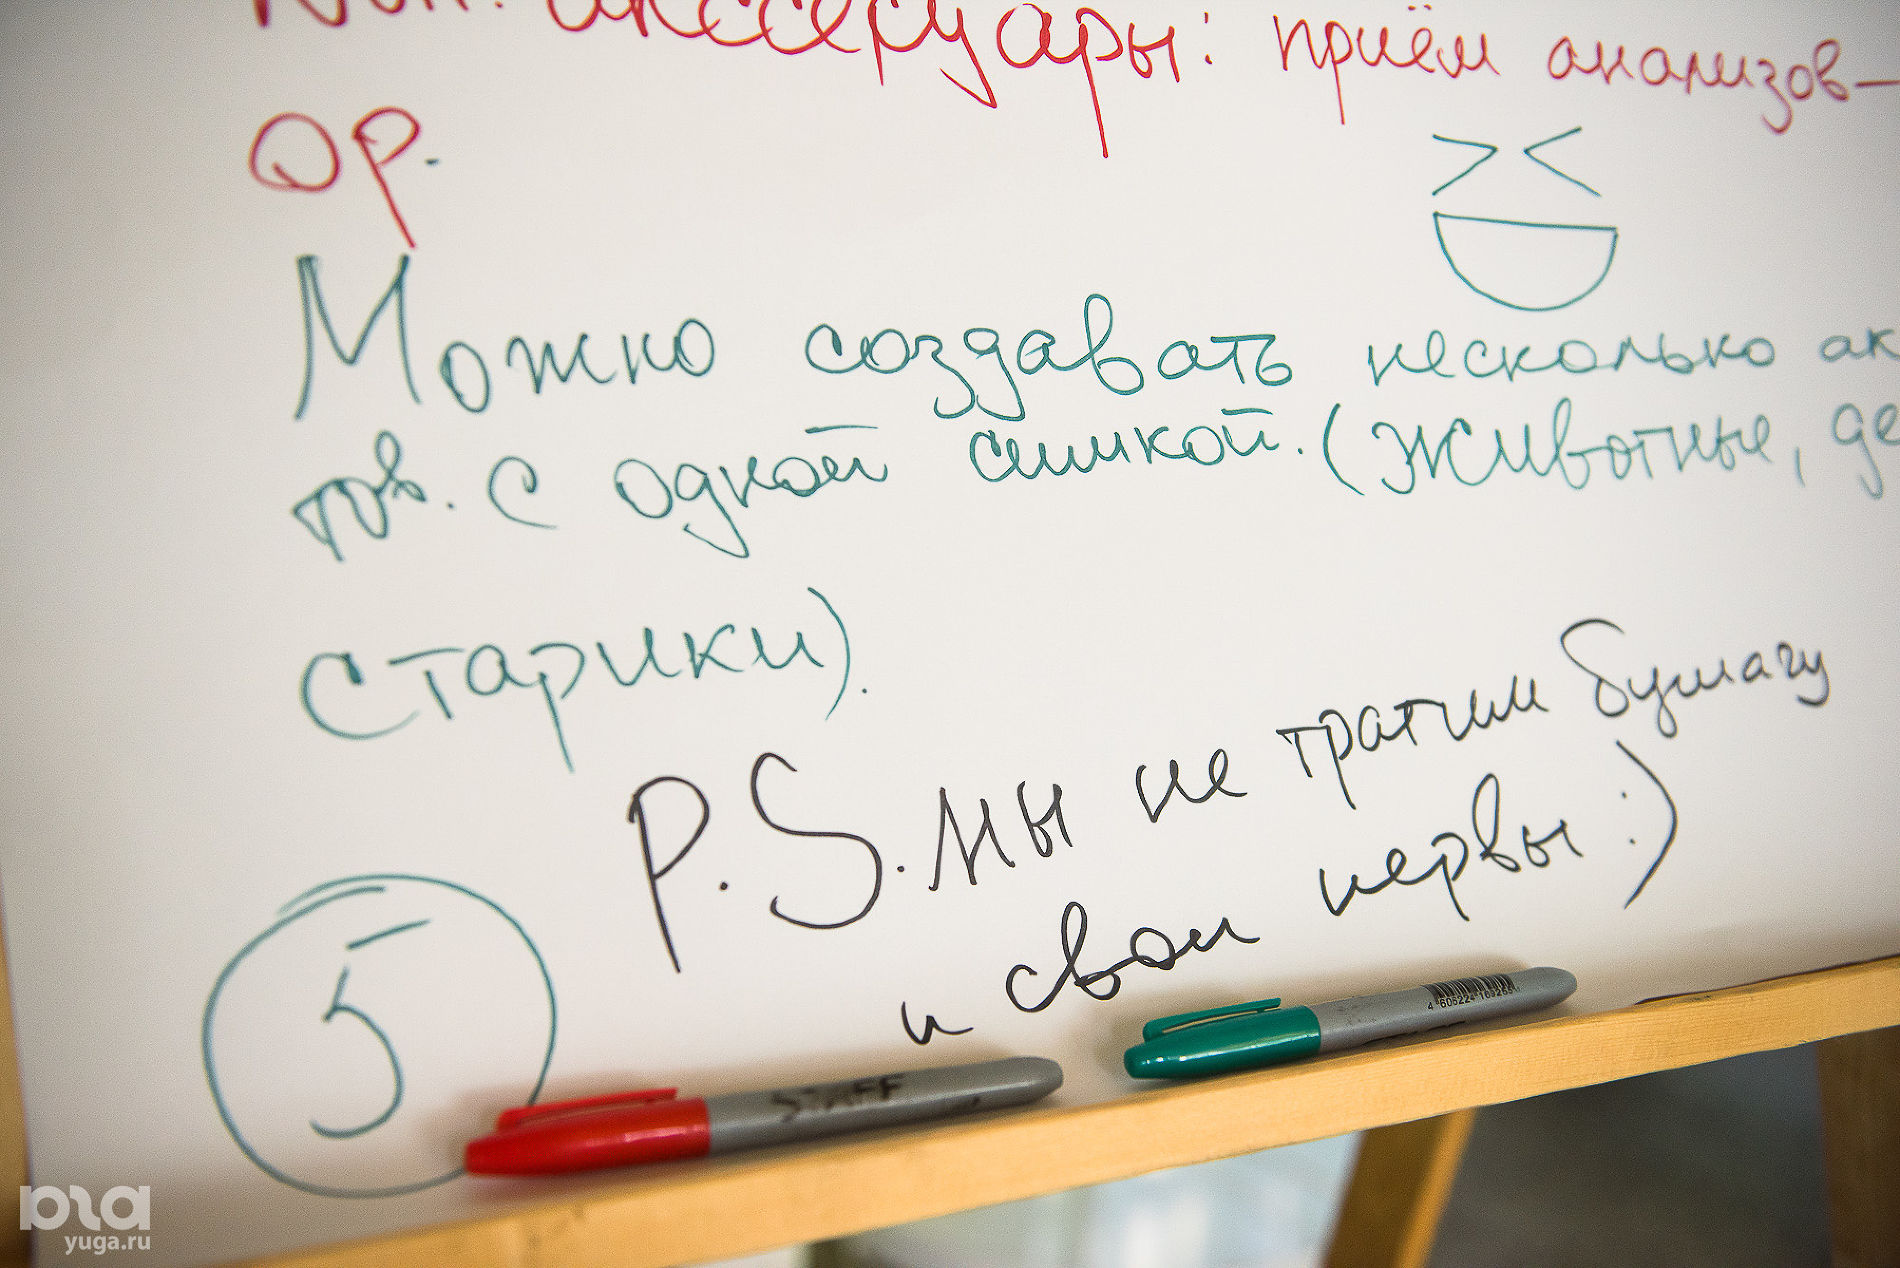 аксессуары: приём анализов-
ор.
Можно создавать несколько ак
тов. с одной симкой. (Животные, де
старики).
P.S. мы не тратим бумагу
и свои нервы :)
5
STAFF
4 606224 169255
рза
yuga.ru